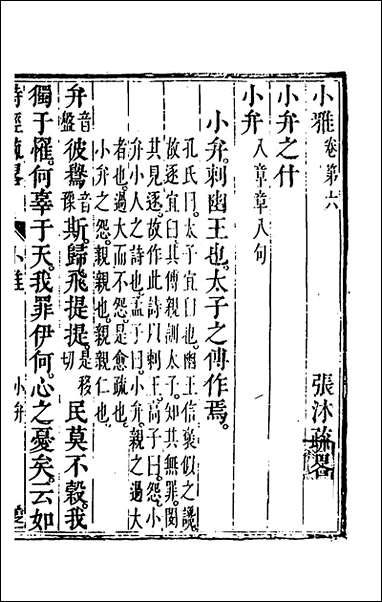 小雅卷第六　張沐疏畧
小弁之什
小弁八章章八句
小弁。刺幽王也。太子之傅作焉。
孔氏曰。太子宜臼也。幽王信褒姒之讒。
放逐宜臼。其傅親訓太子。知其無罪。閔
其見逐。故作此詩以刺王。高子曰。怨。小
弁小人之詩也。孟子曰。小弁。親之過大
者也。過大而不怨。是愈疏也。
小弁之怨。親親也。親親仁也。
弁音盤彼鸒音豫斯。歸飛提提。是移切民莫不穀。我
獨于罹。何辜于天。我罪伊何。心之憂矣。云如
詩經疏畧　小雅　小弁